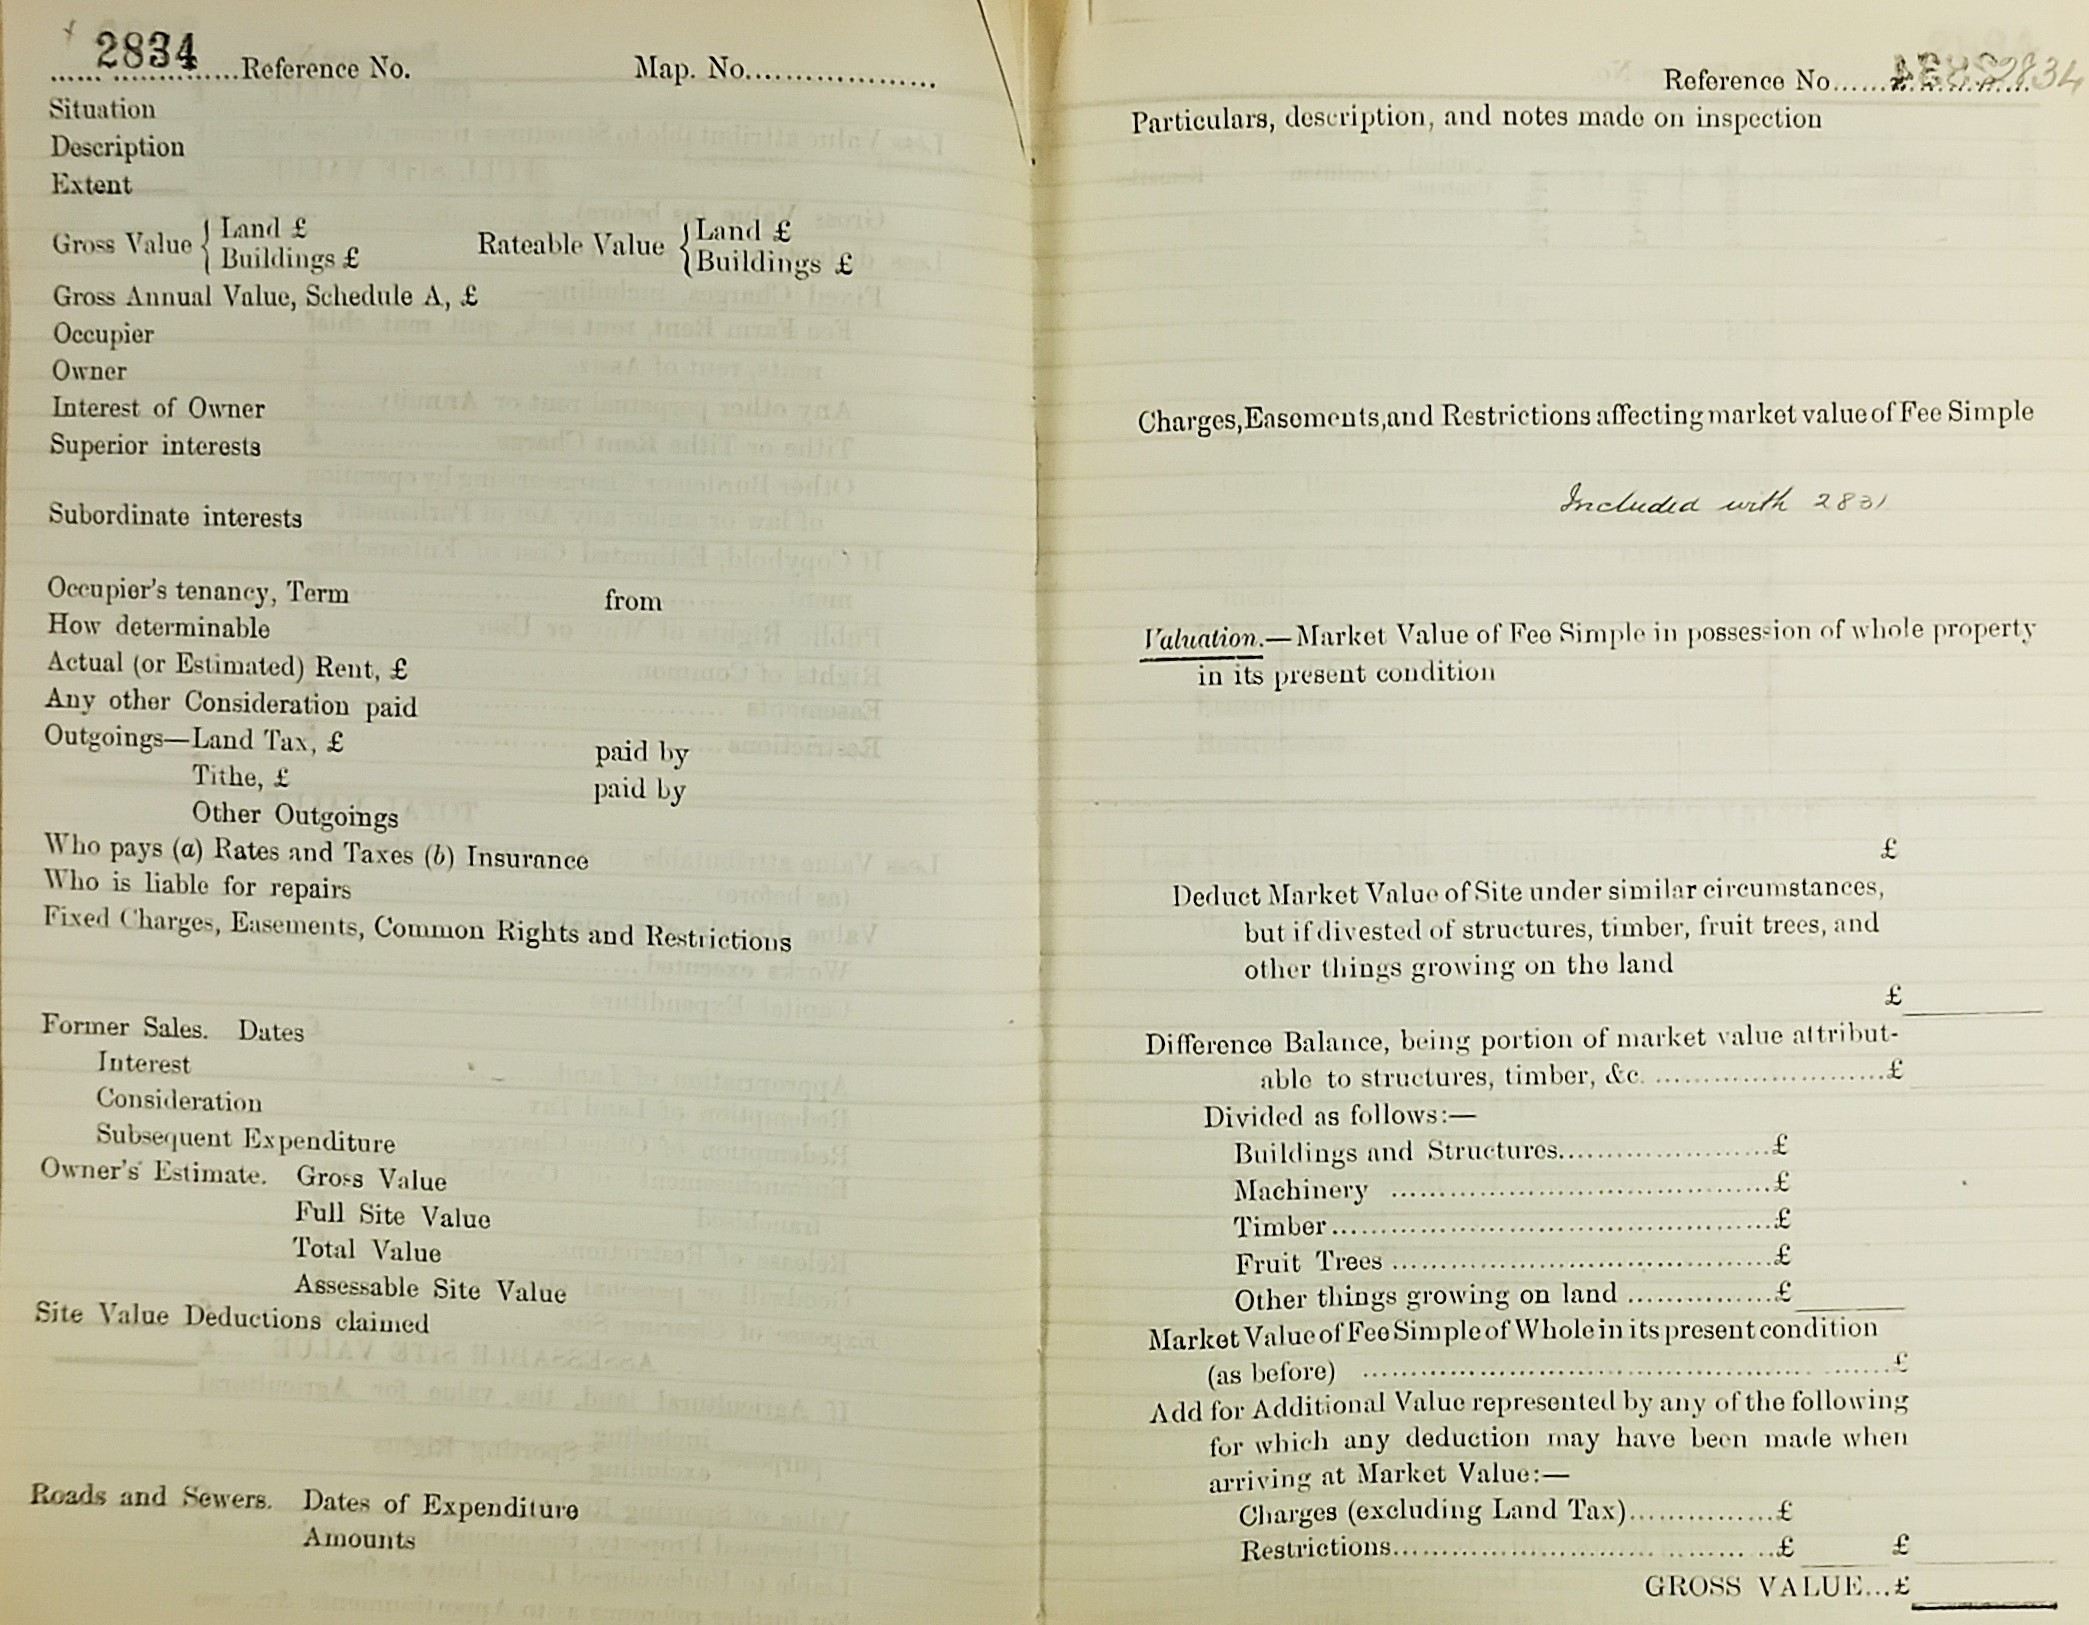 2834
Reference No.
Map. No...................
Situation
Description
Extent
Gross Value { Land £
Buildings £
Rateable Value { Land £
Buildings £
Gross Annual Value, Schedule A, £
Occupier
Owner
Interest of Owner
Superior interests
Subordinate interests
Occupier's tenancy, Term from
How determinable
Actual (or Estimated) Rent, £
Any other Consideration paid
Outgoings—Land Tax, £ paid by
Tithe, £ paid by
Other Outgoings
Who pays (a) Rates and Taxes (b) Insurance
Who is liable for repairs
Fixed Charges, Easements, Common Rights and Restrictions
Former Sales. Dates
Interest
Consideration
Subsequent Expenditure
Owner's Estimate. Gross Value
Full Site Value
Total Value
Assessable Site Value
Site Value Deductions claimed
Roads and Sewers. Dates of Expenditure
Amounts
Reference No...... 2834
Particulars, description, and notes made on inspection
Charges, Easements, and Restrictions affecting market value of Fee Simple
Included with 2831
Valuation.—Market Value of Fee Simple in possession of whole property
in its present condition
£
Deduct Market Value of Site under similar circumstances,
but if divested of structures, timber, fruit trees, and
other things growing on the land
£
Difference Balance, being portion of market value attribut-
able to structures, timber, &c. ........................£
Divided as follows:—
Buildings and Structures......................£
Machinery ......................................£
Timber.............................................£
Fruit Trees ......................................£
Other things growing on land ...............£
Market Value of Fee Simple of Whole in its present condition
(as before) ......................................................£
Add for Additional Value represented by any of the following
for which any deduction may have been made when
arriving at Market Value:—
Charges (excluding Land Tax)...............£
Restrictions.......................................£ £
GROSS VALUE...£